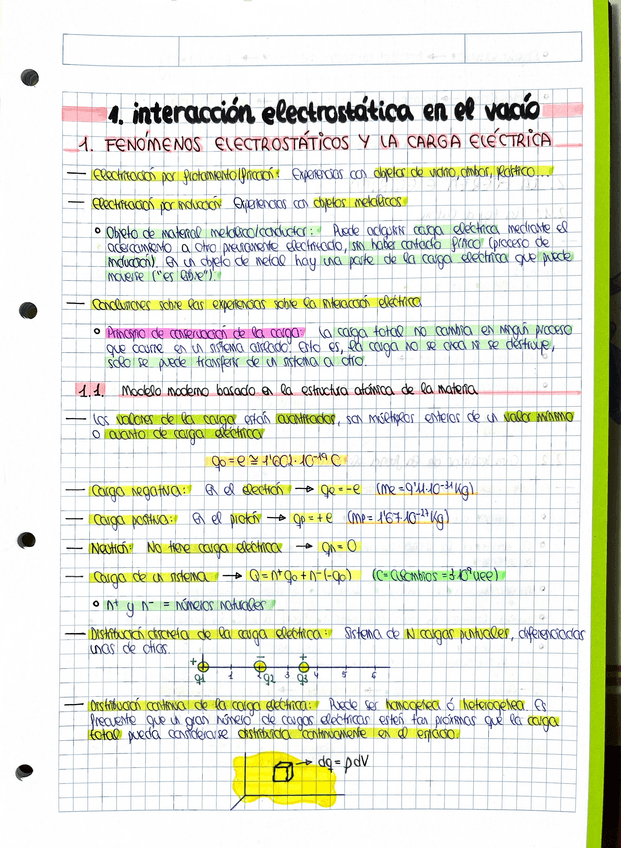 1. interacción electrostática en el vacío
1. FENÓMENOS ELECTROSTÁTICOS Y LA CARGA ELÉCTRICA
— Electrización por frotamiento/fricción: Experiencias con objetos de vidrio, ámbar, plástico...
— Electrización por inducción: Experiencias con objetos metálicos
° Objeto de material metálico/conductor: Puede adquirir carga eléctrica mediante el
acercamiento a otro previamente electrizado, sin haber contacto físico (proceso de
inducción). En un objeto de metal hay una parte de la carga eléctrica que puede
moverse ("es libre").
— Conclusiones sobre las experiencias sobre la interacción eléctrica
° Principio de conservación de la carga: la carga total no cambia en ningún proceso
que ocurre en un sistema aislado. Esto es, la carga no se crea ni se destruye,
sólo se puede transferir de un sistema a otro.
1.1. Modelo moderno basado en la estructura atómica de la materia
— Los valores de la carga están cuantizados, son múltiplos enteros de un valor mínimo
o cuanto de carga eléctrica
q0 = e ≅ 1'602·10⁻¹⁹ C
— Carga negativa: En el electrón → qe = -e (me = 9'11·10⁻³¹ Kg)
— Carga positiva: En el protón → qp = +e (mp = 1'67·10⁻²⁷ Kg)
— Neutrón: No tiene carga eléctrica → qn = 0
— Carga de un sistema → Q = n⁺q0 + n⁻(-q0) (C = culombios = 3·10⁹ uee)
° n⁺ y n⁻ = números naturales
— Distribución discreta de la carga eléctrica: Sistema de N cargas puntuales, diferenciadas
unas de otras.
+ − +
1 2 3 4 5 6
q1 q2 q3
— Distribución continua de la carga eléctrica: Puede ser homogénea ó heterogénea. Es
frecuente que un gran número de cargas eléctricas estén tan próximas que la carga
total pueda considerarse distribuida continuamente en el espacio.
→ dq = ρdV